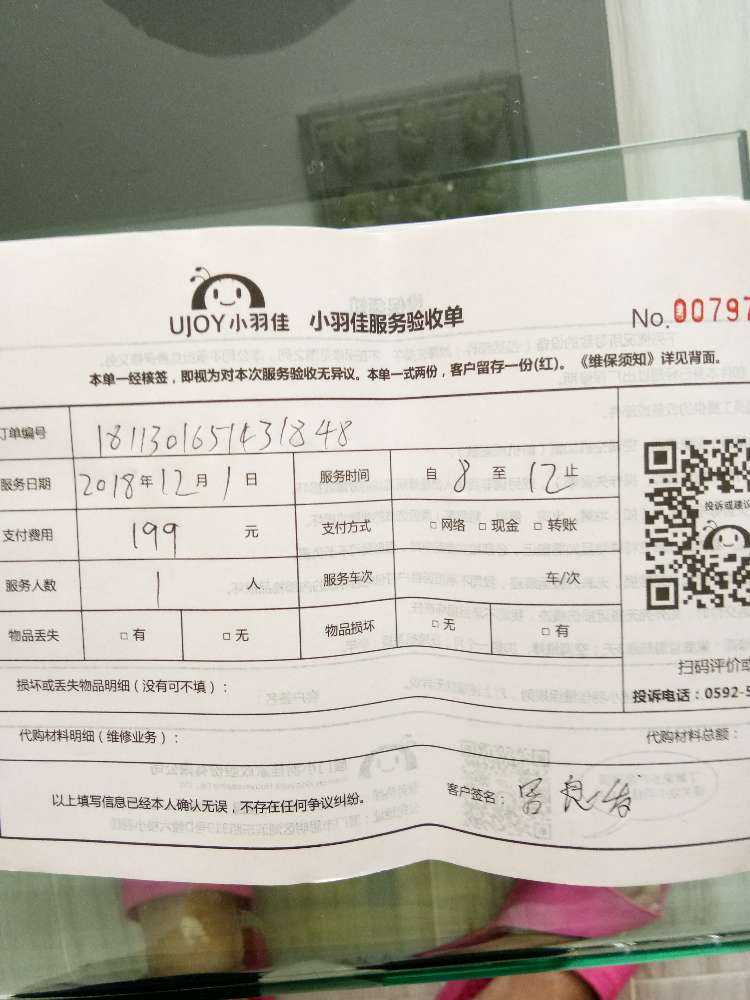 UJOY小羽佳 小羽佳服务验收单 No.00797
本单一经核签，即视为对本次服务验收无异议。本单一式两份，客户留存一份(红)。《维保须知》详见背面。
订单编号 1811301651431848
服务日期 2018年12月1日 服务时间 自8至12止
投诉或建议
支付费用 199 元 支付方式 □网络 □现金 □转账
服务人数 1 人 服务车次 车/次
物品丢失 □有 □无 物品损坏 □无 □有
扫码评价或
损坏或丢失物品明细（没有可不填）：
投诉电话：0592-5
代购材料明细（维修业务）： 代购材料总额：
以上填写信息已经本人确认无误，不存在任何争议纠纷。 客户签名：